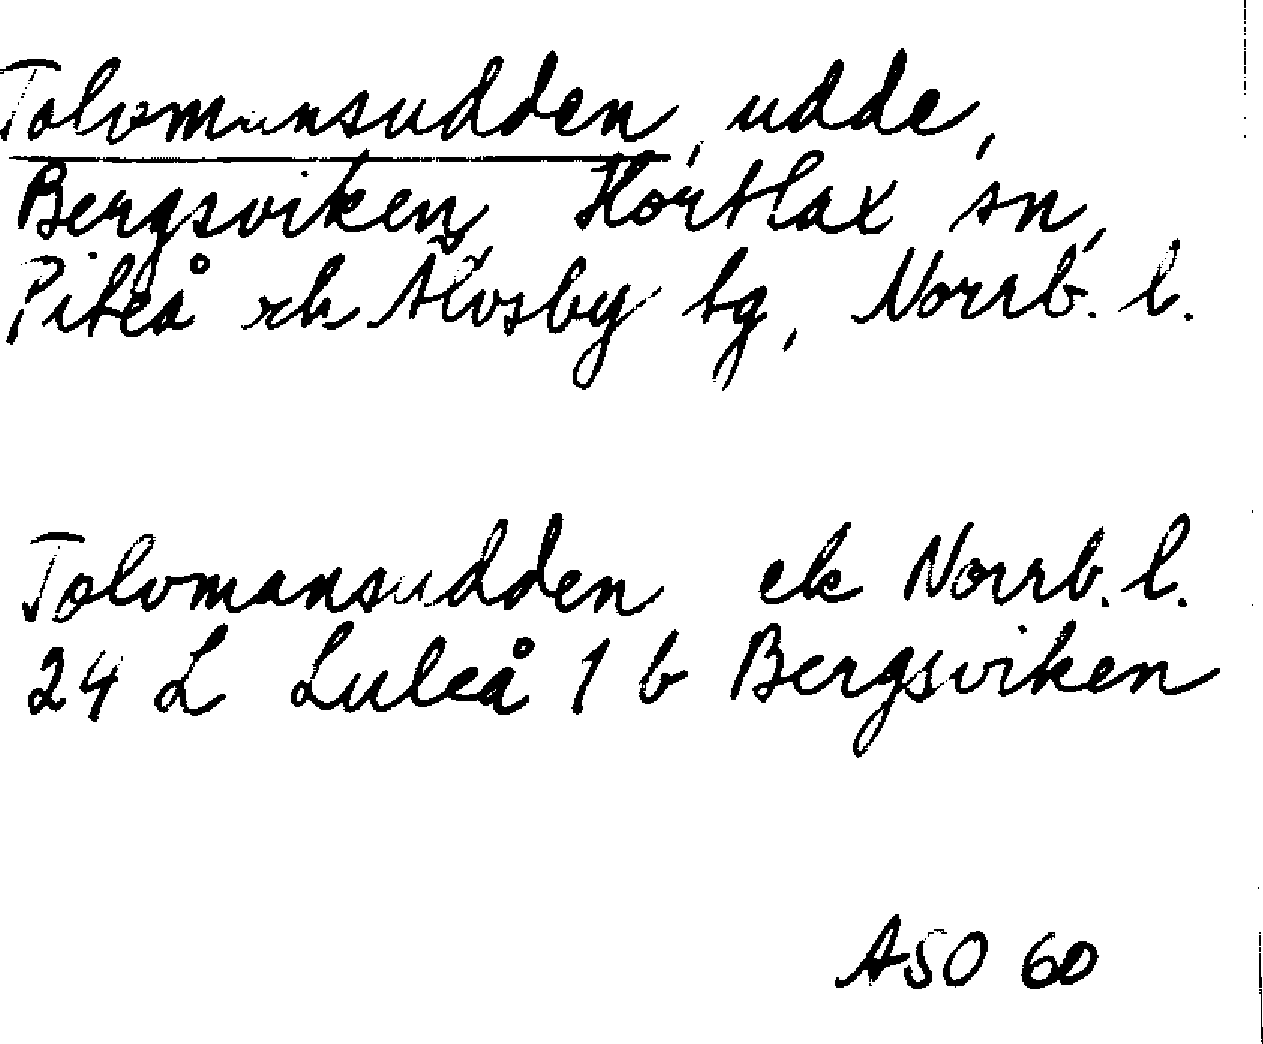 Tolvmansudden, udde,
Bergsviken, Hortlax sn,
Piteå och Älvsby tg, Norrb. l.
Tolvmansudden ek Norrb. l.
24 L Luleå 1 b Bergsviken
ASO 60